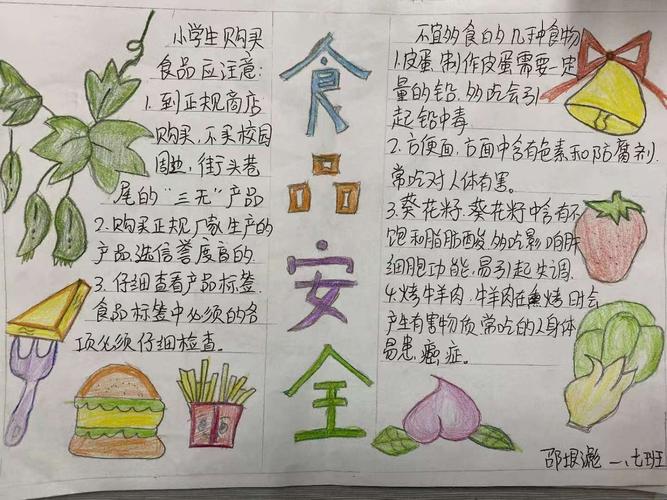 小学生购买
食品应注意:
1.到正规商店
购买,不买校园
周边,街头巷
尾的“三无”产品
2.购买正规厂家生产的
产品,选信誉度高的.
3.仔细查看产品标签.
食品标签中必须的各
项必须仔细检查。
食品安全
不宜多食的几种食物
1.皮蛋,制作皮蛋需要一定
量的铅,多吃会引
起铅中毒.
2.方便面,方面中含有色素和防腐剂.
常吃对人体有害。
3.葵花籽.葵花籽中含有不
饱和脂肪酸,多吃影响肝
细胞功能,易引起失调.
4.烤牛羊肉,牛羊肉在熏烤时会
产生有害物质,常吃的人身体
易患癌症。
邵垠彪 一、七班